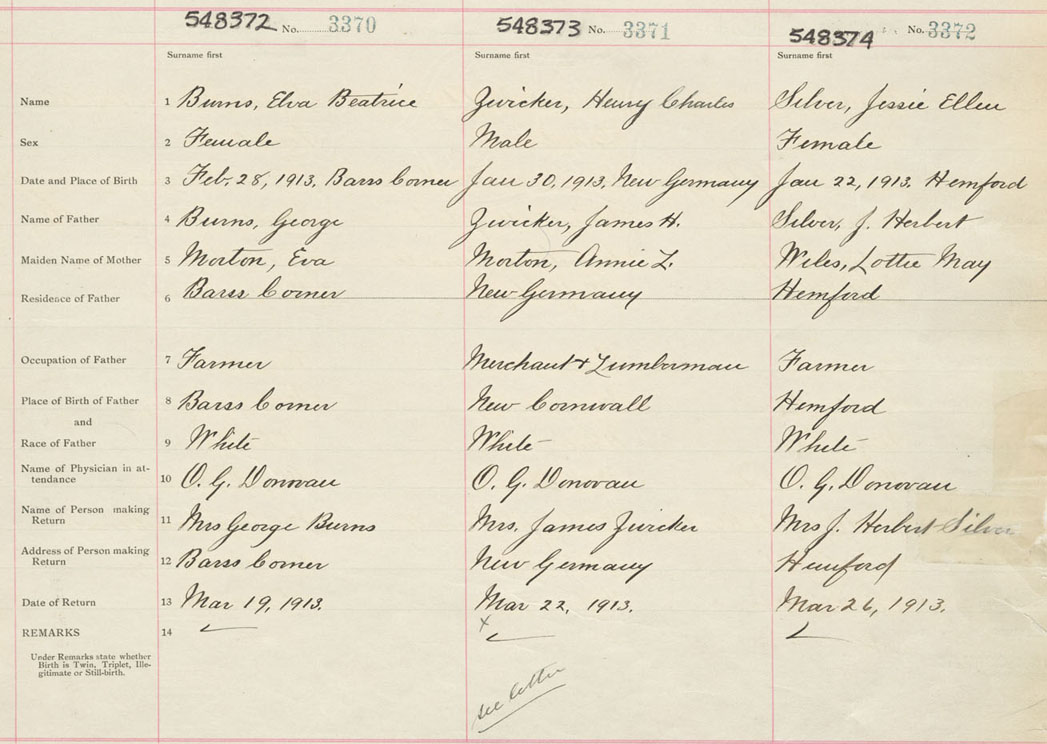 548372 No. 3370 548373 No. 3371 548374 No. 3372
Surname first Surname first Surname first
Name 1 Burns, Elva Beatrice Zwicker, Henry Charles Silver, Jessie Ellen
Sex 2 Female Male Female
Date and Place of Birth 3 Feb. 28, 1913. Barss Corner Jan 30, 1913, New Germany Jan 22, 1913. Hemford
Name of Father 4 Burns, George Zwicker, James H. Silver, J. Herbert
Maiden Name of Mother 5 Morton, Eva Morton, Annie L. Wiles, Lottie May
Residence of Father 6 Barss Corner New Germany Hemford
Occupation of Father 7 Farmer Merchant + Lumberman Farmer
Place of Birth of Father 8 Barss Corner New Cornwall Hemford
and
Race of Father 9 White White White
Name of Physician in at-
tendance 10 O. G. Donovan O. G. Donovan O. G. Donovan
Name of Person making
Return 11 Mrs George Burns Mrs. James Zwicker Mrs J. Herbert Silver
Address of Person making
Return 12 Barss Corner New Germany Hemford
Date of Return 13 Mar 19, 1913. Mar 22, 1913. Mar 26, 1913.
REMARKS 14
x
Under Remarks state whether
Birth is Twin, Triplet, Ille-
gitimate or Still-birth.
see letter